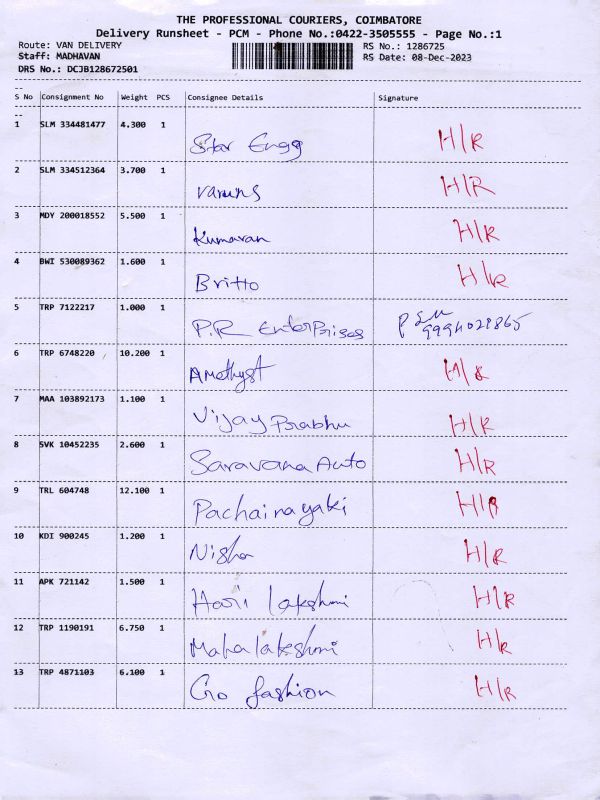 THE PROFESSIONAL COURIERS, COIMBATORE
Delivery Runsheet - PCM - Phone No.:0422-3505555 - Page No.:1
Route: VAN DELIVERY RS No.: 1286725
Staff: MADHAVAN RS Date: 08-Dec-2023
DRS No.: DCJB128672501
S No Consignment No Weight PCS Consignee Details Signature
1 SLM 334481477 4.300 1 Star Engg H/R
2 SLM 334512364 3.700 1 H/R
3 MDY 200018552 5.500 1 Kumaran H/R
4 BWI 530089362 1.600 1 Britto H/R
5 TRP 7122217 1.000 1 P.R EnterPrises 9994029865
6 TRP 6748220 10.200 1 Amethyst H/R
7 MAA 103892173 1.100 1 Vijay Prabhu H/R
8 SVK 10452235 2.600 1 Saravana Auto H/R
9 TRL 604748 12.100 1 Pachainayaki H/R
10 KDI 900245 1.200 1 Nisha H/R
11 APK 721142 1.500 1 Hari lakshmi H/R
12 TRP 1190191 6.750 1 Maha lakshmi H/R
13 TRP 4871103 6.100 1 Go fashion H/R